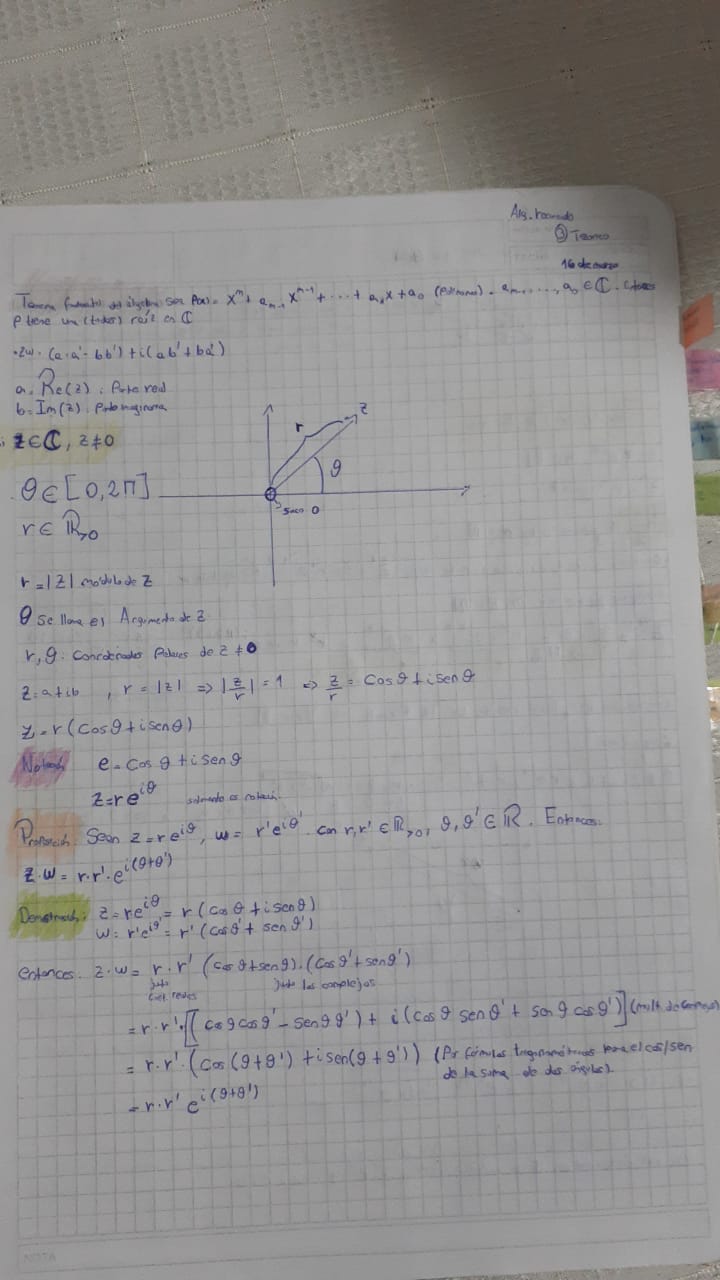 ③ Teórico
16 de marzo
Teorema fundamental del álgebra: Sea P(x) = xⁿ + aₙ₋₁ xⁿ⁻¹ + ... + a₁x + a₀ (Polinomio) . aₙ₋₁, ..., a₀ ∈ ℂ. Entonces
P tiene una (todas) raíz en ℂ
• zw = (a·a' - bb') + i(ab' + ba')
a = Re(z) : Parte real
b = Im(z) : Parte imaginaria
z ∈ ℂ, z ≠ 0
r
z
θ
θ ∈ [0, 2π]
Saco 0
r ∈ ℝ>0
r = |z| módulo de z
θ se llama es Argumento de z
r, θ : Coordenadas Polares de z ≠ 0
z = a + ib , r = |z| ⇒ |z/r| = 1 ⇒ z/r = Cos θ + i sen θ
z = r (Cos θ + i sen θ)
Notación e = Cos θ + i sen θ
z = r e^{iθ} solamente es notación.
Proposición: Sean z = r e^{iθ}, w = r' e^{iθ'} con r, r' ∈ ℝ>0, θ, θ' ∈ ℝ. Entonces.
z·w = r·r'·e^{i(θ+θ')}
Demostración: z = re^{iθ} = r (cos θ + i sen θ)
w = r'e^{iθ'} = r' (cos θ' + sen θ')
Entonces. z·w = r·r' (cos θ + sen θ).(cos θ' + sen θ')
junto junto los complejos
reales
= r·r'·[(cos θ cos θ' - sen θ θ') + i(cos θ sen θ' + sen θ cos θ')] (mult. de Complejos)
= r·r'·(cos (θ+θ') + i sen(θ+θ')) (Por fórmulas trigonométricas para el cos/sen
de la suma de dos ángulos).
= r·r' e^{i(θ+θ')}